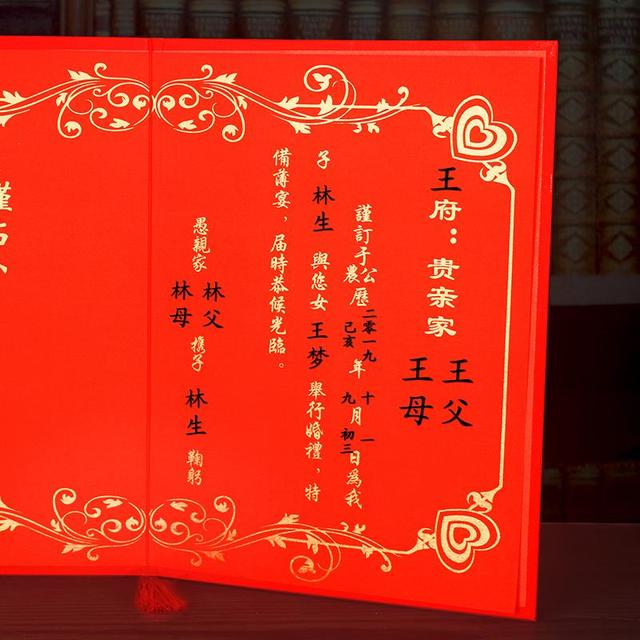 王府：贵亲家 王父
王母
謹訂于公曆二零一九年十月一日為我
農 己亥 九 初三
子 林生 與您女 王梦 舉行婚禮，特
備薄宴，届時恭候光臨。
愚親家 林父
林母 携子 林生 鞠躬